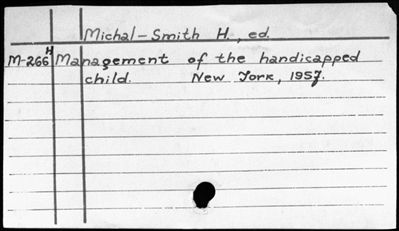 Michal-Smith H., ed.
M-266H Management of the handicapped
child. New York, 1957.